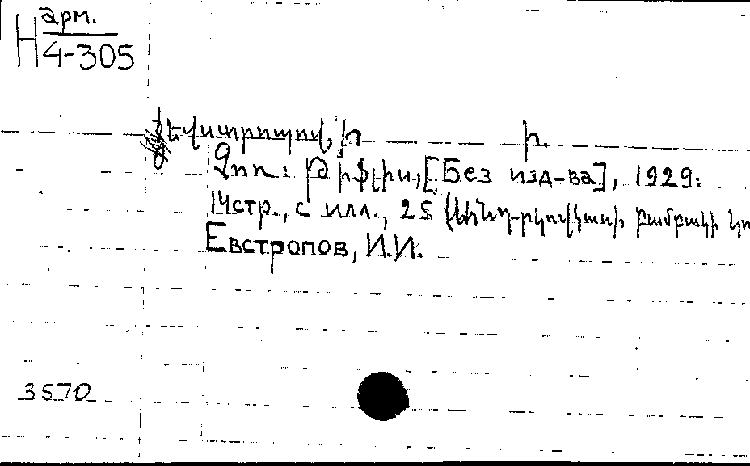 арм.
Н 4-305
Եվստրոպով, Ի. Ի.
Զոռ: Թիֆլիս, [Без изд-ва], 1929:
14стр., с илл., 25
Евстропов, И.И.
3570